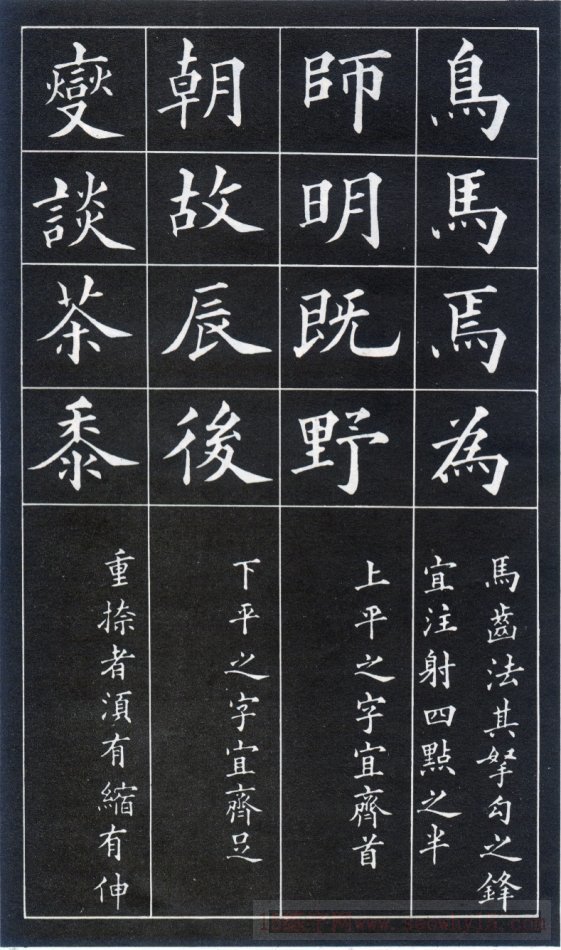 鳥馬焉為
馬齒法其拏勾之鋒
宜注射四點之半
師明既野
上平之字宜齊首
朝故辰後
下平之字宜齊足
燮談茶黍
重捺者須有縮有伸